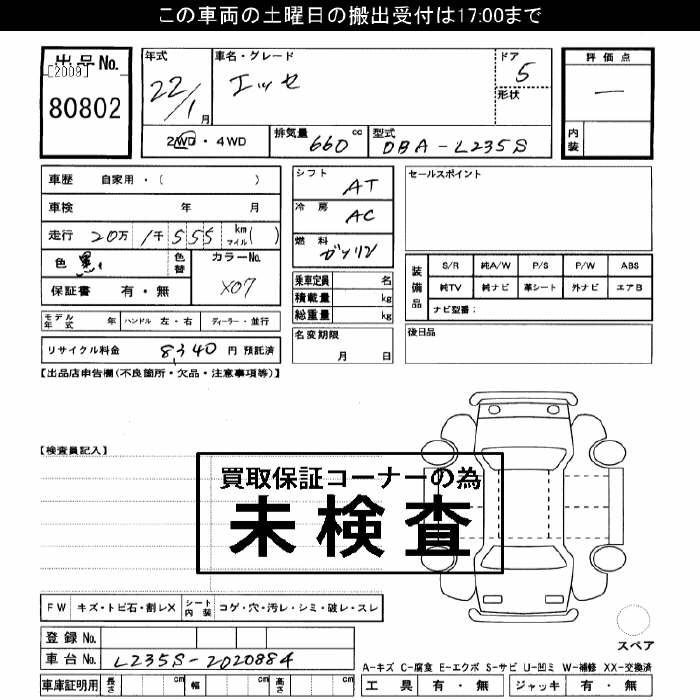 この車両の土曜日の搬出受付は17:00まで
出品No.
[2009]
80802
年式
22/1月
車名・グレード
エッセ
ドア
5
形状
評価点
—
内装
2WD・4WD
排気量 660 cc
型式 DBA-L235S
車歴 自家用・( )
車検 年 月
走行 20万1千555 km マイル( )
色 黒 色替
カラーNo.
X07
保証書 有・無
シフト AT
冷房 AC
燃料 ガソリン
乗車定員 名
積載量 kg
総重量 kg
セールスポイント
装備品
S/R 純A/W P/S P/W ABS
純TV 純ナビ 革シート 外ナビ エアB
ナビ型番:
モデル年式 年 ハンドル 左・右 ディーラー・並行
リサイクル料金 8,340 円 預託済
名変期限
月 日
後日品
【出品店申告欄(不良箇所・欠品・注意事項等)】
【検査員記入】
買取保証コーナーの為
未検査
FW キズ・トビ石・割レX シート内装 コゲ・穴・汚レ・シミ・破レ・スレ
登録No.
車台No. L235S-2020884
車庫証明用 長さ cm 幅 cm 高さ cm
スペア
A-キズ C-腐食 E-エクボ S-サビ U-凹ミ W-補修 XX-交換済
工具 有・無 ジャッキ 有・無